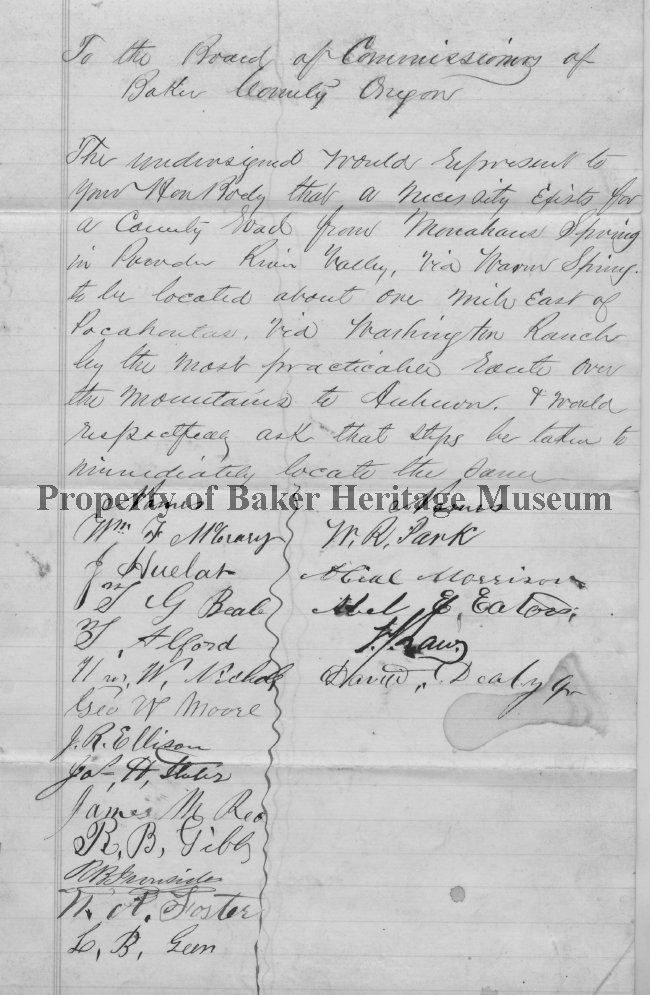 To the Board of Commissioners of
Baker County Oregon
The undersigned would represent to
your Hon Body that a necessity exists for
a County Road from Monahans Spring
in Powder River Valley, via Warm Spring.
to be located about one mile East of
Pocahontas. via Washington Ranch
by the most practicable route over
the mountains to Auburn. & would
respectfully ask that steps be taken to
immediately locate the same
Property of Baker Heritage Museum
Names
Wm F McCrary
J Huelat
T G Beale
T. Alford
Wm W. Nichols
Geo W Moore
J. R. Ellison
Jos. H,
James M Rea
R. B. Gibbs
R B Ironsides
N. A. Foster
L, B, Geen
Names
W. R. Park
Morrison
E, Eaton,
David Dealy Jr